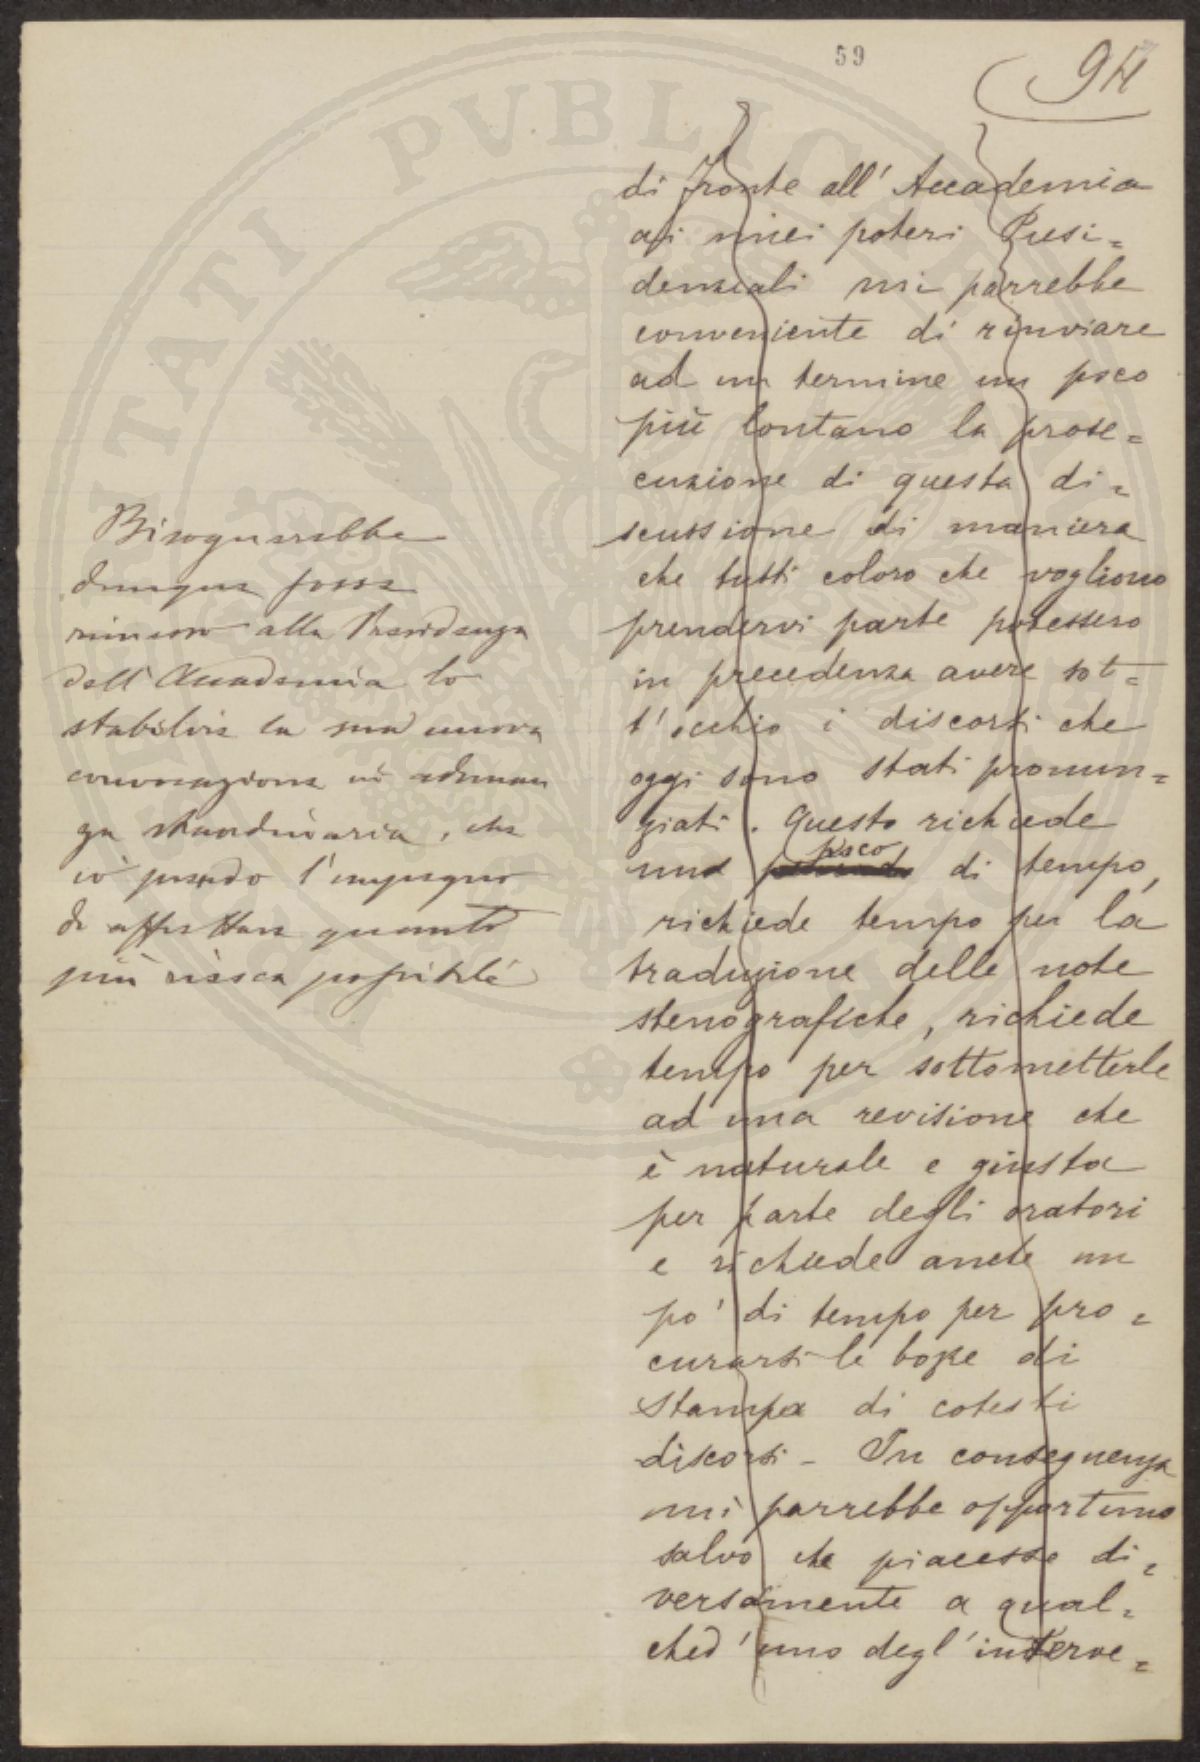 59
94
di fronte all' Accademia
ai miei poteri Presi=
denziali mi parrebbe
conveniente di rinviare
ad un termine un poco
più lontano la prose=
cuzione di questa di=
scussione di maniera
che tutti coloro che vogliono
prendervi parte potessero
in precedenza avere sot=
t'occhio i discorsi che
oggi sono stati pronun=
ziati. Questo richiede
un poco di tempo,
richiede tempo per la
traduzione delle note
stenografiche, richiede
tempo per sottometterle
ad una revisione che
è naturale e giusta
per parte degli oratori
e richiede anche un
po' di tempo per pro=
curarsi le bozze di
stampa di cotesti
discorsi - In conseguenza
mi parrebbe opportuno
salvo che piacesse di=
versamente a qual=
ched'uno degl'interve=
Bisognerebbe
dunque fosse
rimesso alla Presidenza
dell'Accademia lo
stabilire la sua nuova
convocazione in adunan
za straordinaria, che
io prendo l'impegno
di affrettare quanto
più riesca possibile
PVBLICAE